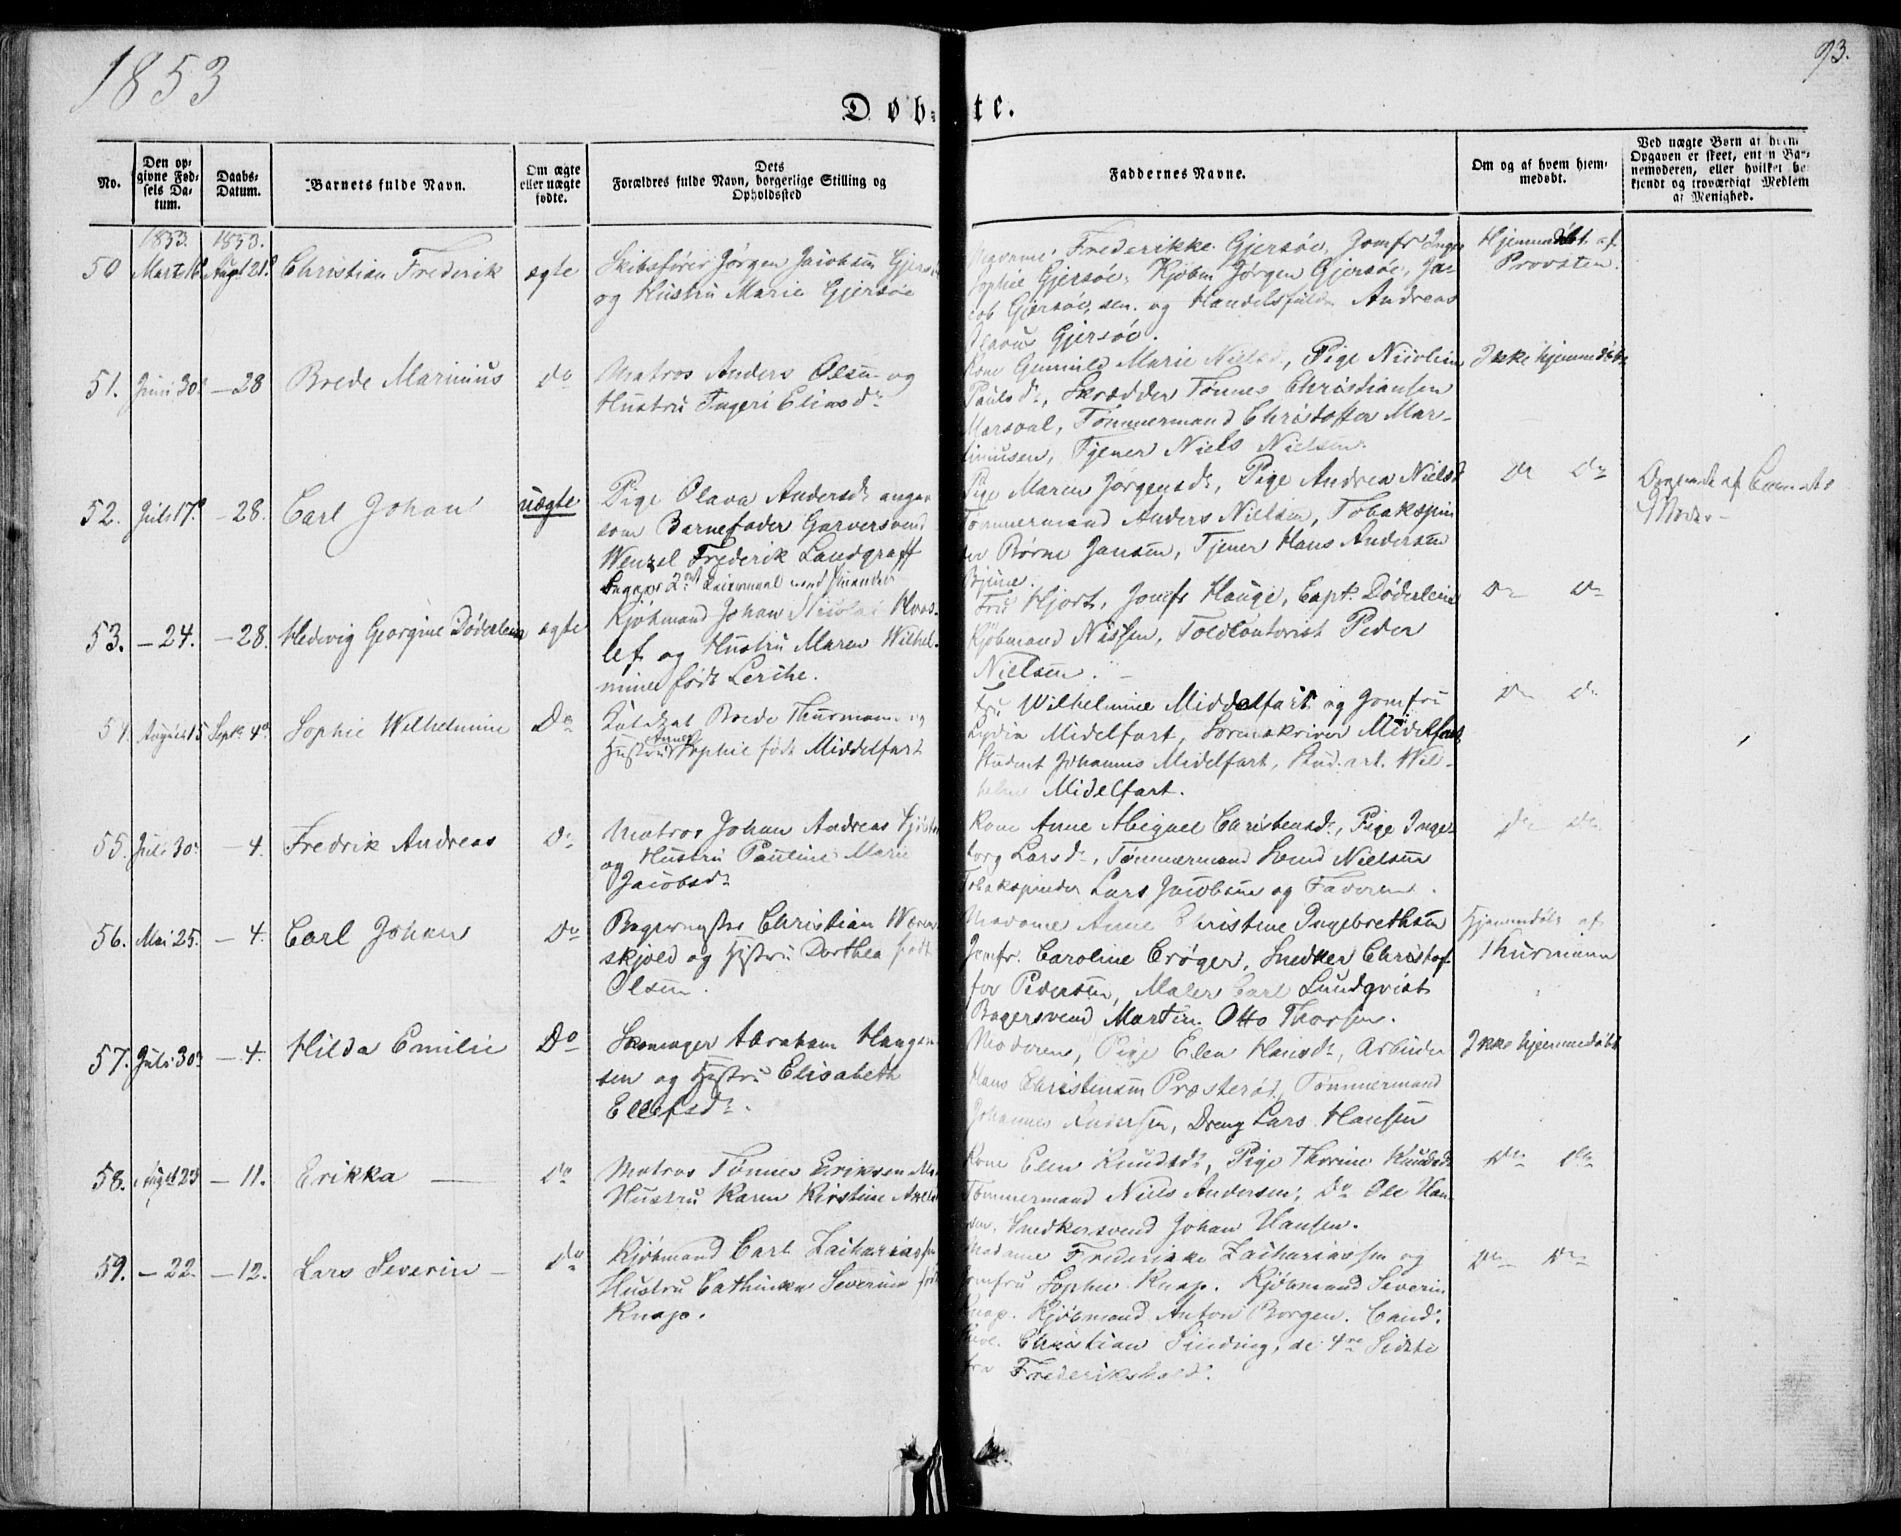 1853
93.
Døb-te.
No.
Den opgivne Fødsels Datum.
Daabs-Datum.
Barnets fulde Navn.
Om ægte eller uægte fødte.
Dets Forældres fulde Navn, borgerlige Stilling og Opholdssted
Faddernes Navne.
Om og af hvem hjemmedøbt.
Ved uægte Børn af hvem Opgaven er skeet, enten Barnemoderen, eller hvilket bekjendt og troværdigt Medlem af Menighed.
1853. 1853.
50 Marts Augt 21d Christian Frederik ægte
Skibsfører Jørgen Jacobsen Gjersøe
og Hustru Marie Gjersøe
Frederikke Gjersøe, Jomfr Inger
Sophie Gjersøe, Kjøbm Jørgen Gjersøe, Ja-
cob Gjersøe, sen. og Handelsfuldm Andreas
Olaus Gjersøe.
Hjemmedøbt af
Provsten.
51. Juni 30 - 28 Brede Marinius do
Matros Anders Olsen og
Hustru Ingeri Eliasdr
Kone Gunnild Marie Nielsd, Pige Nicoline
Paulsdr, Skrædder Tønnes Christiansen
Tømmermand Christoffer Mar-
tiniusen, Tjener Niels Nielsen.
Ikke hjemmedøbt
52. Juli 17d - 28. Carl Johan uægte
Pige Olava Andersdr angav
som Barnefader Garversvend
Wenzel Frederik Landgraff
Begges 2det Leiermaal med hinanden
Pige Maren Jørgensdr, Pige Andrea Nielsd
Tømmermand Anders Nielsen, Tobakspin
der Børne Jansen, Tjener Hans Andersen
Bjune.
Do Do
Moder
53. - 24. - 28. Hedvig Georgine Døderlein ægte
Kjøbmand Johan Nicolai Hvos-
lef og Hustru Maren Wilhel-
mine født Lerche.
Fru Hjort, Jomfr Hauge, Capt. Døderlein
Kjøbmand Nissen, Toldcontorist Peder
Nielsen.
Do Do
54. August 15 Sept. 4d Sophie Wilhelmine Do
Brede Thurmann og
Hustru Anne Sophie født Middelfart
Fru Wilhelmine Middelfart og Jomfru
Lydia Midelfart, Sorenskriver Midelfart
Student Johannes Midelfart, Stud. art. Wil-
helm Midelfart.
Do Do
55. Juli 30 - 4. Fredrik Andreas do
Matros Johan Andreas
og Hustru Pauline Marie
Jacobsdr
Kone Anne Abigael Christensdr, Pige Inge-
borg Larsdr, Tømmermand Svend Nielsen
Tobakspinder Lars Jacobsen og Faderen.
Do Do
56. Mai 25. - 4. Carl Johan Do
Bagermester Christian Wæren-
skjold og Hustru Dorthea født
Olsen.
Madame Anne Christine Ingebrethsen
Jomfr. Caroline Crøger, Snedker Christof-
fer Pedersen, Maler Carl Lundqvist
Bagersvend Martin Otto Thorsen.
Hjemmedøbt af
Thurmann
57. Juli 30 - 4. Hilda Emilie Do
Skomager Abraham Haagen-
sen og Hustru Elisabeth
Ellefsdr.
Moderen, Pige Elen Hansdr, Arbeider
Hans Christensen Præsterød, Tømmermand
Johannes Andersen, Dreng Lars Hansen
Ikke hjemmedøbt
58. Augt 23 - 11. Erikka do
Matros Tønnes Eriksen
Hustru Karen Kirstine
Kone Elen Knudsdr, Pige Thorine Knudsdr
Tømmermand Niels Andersen, Do Ole Han-
sen, Snedkersvend Johan Hansen.
Do Do
59. - 22 - 12. Lars Severin do
Kjøbmand Carl Zachariassen
Hustru Cathinka Severine født
Knap.
Madame Frederikke Zachariassen og
Jomfru Sophie Knap. Kjøbmand Severin
Knap. Kjøbmand Anton Borgen. Cand.
Christian Sinding, de 4re Sidste
fra Frederikshald.
Do Do